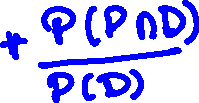 + P(P∩D)
P(D)